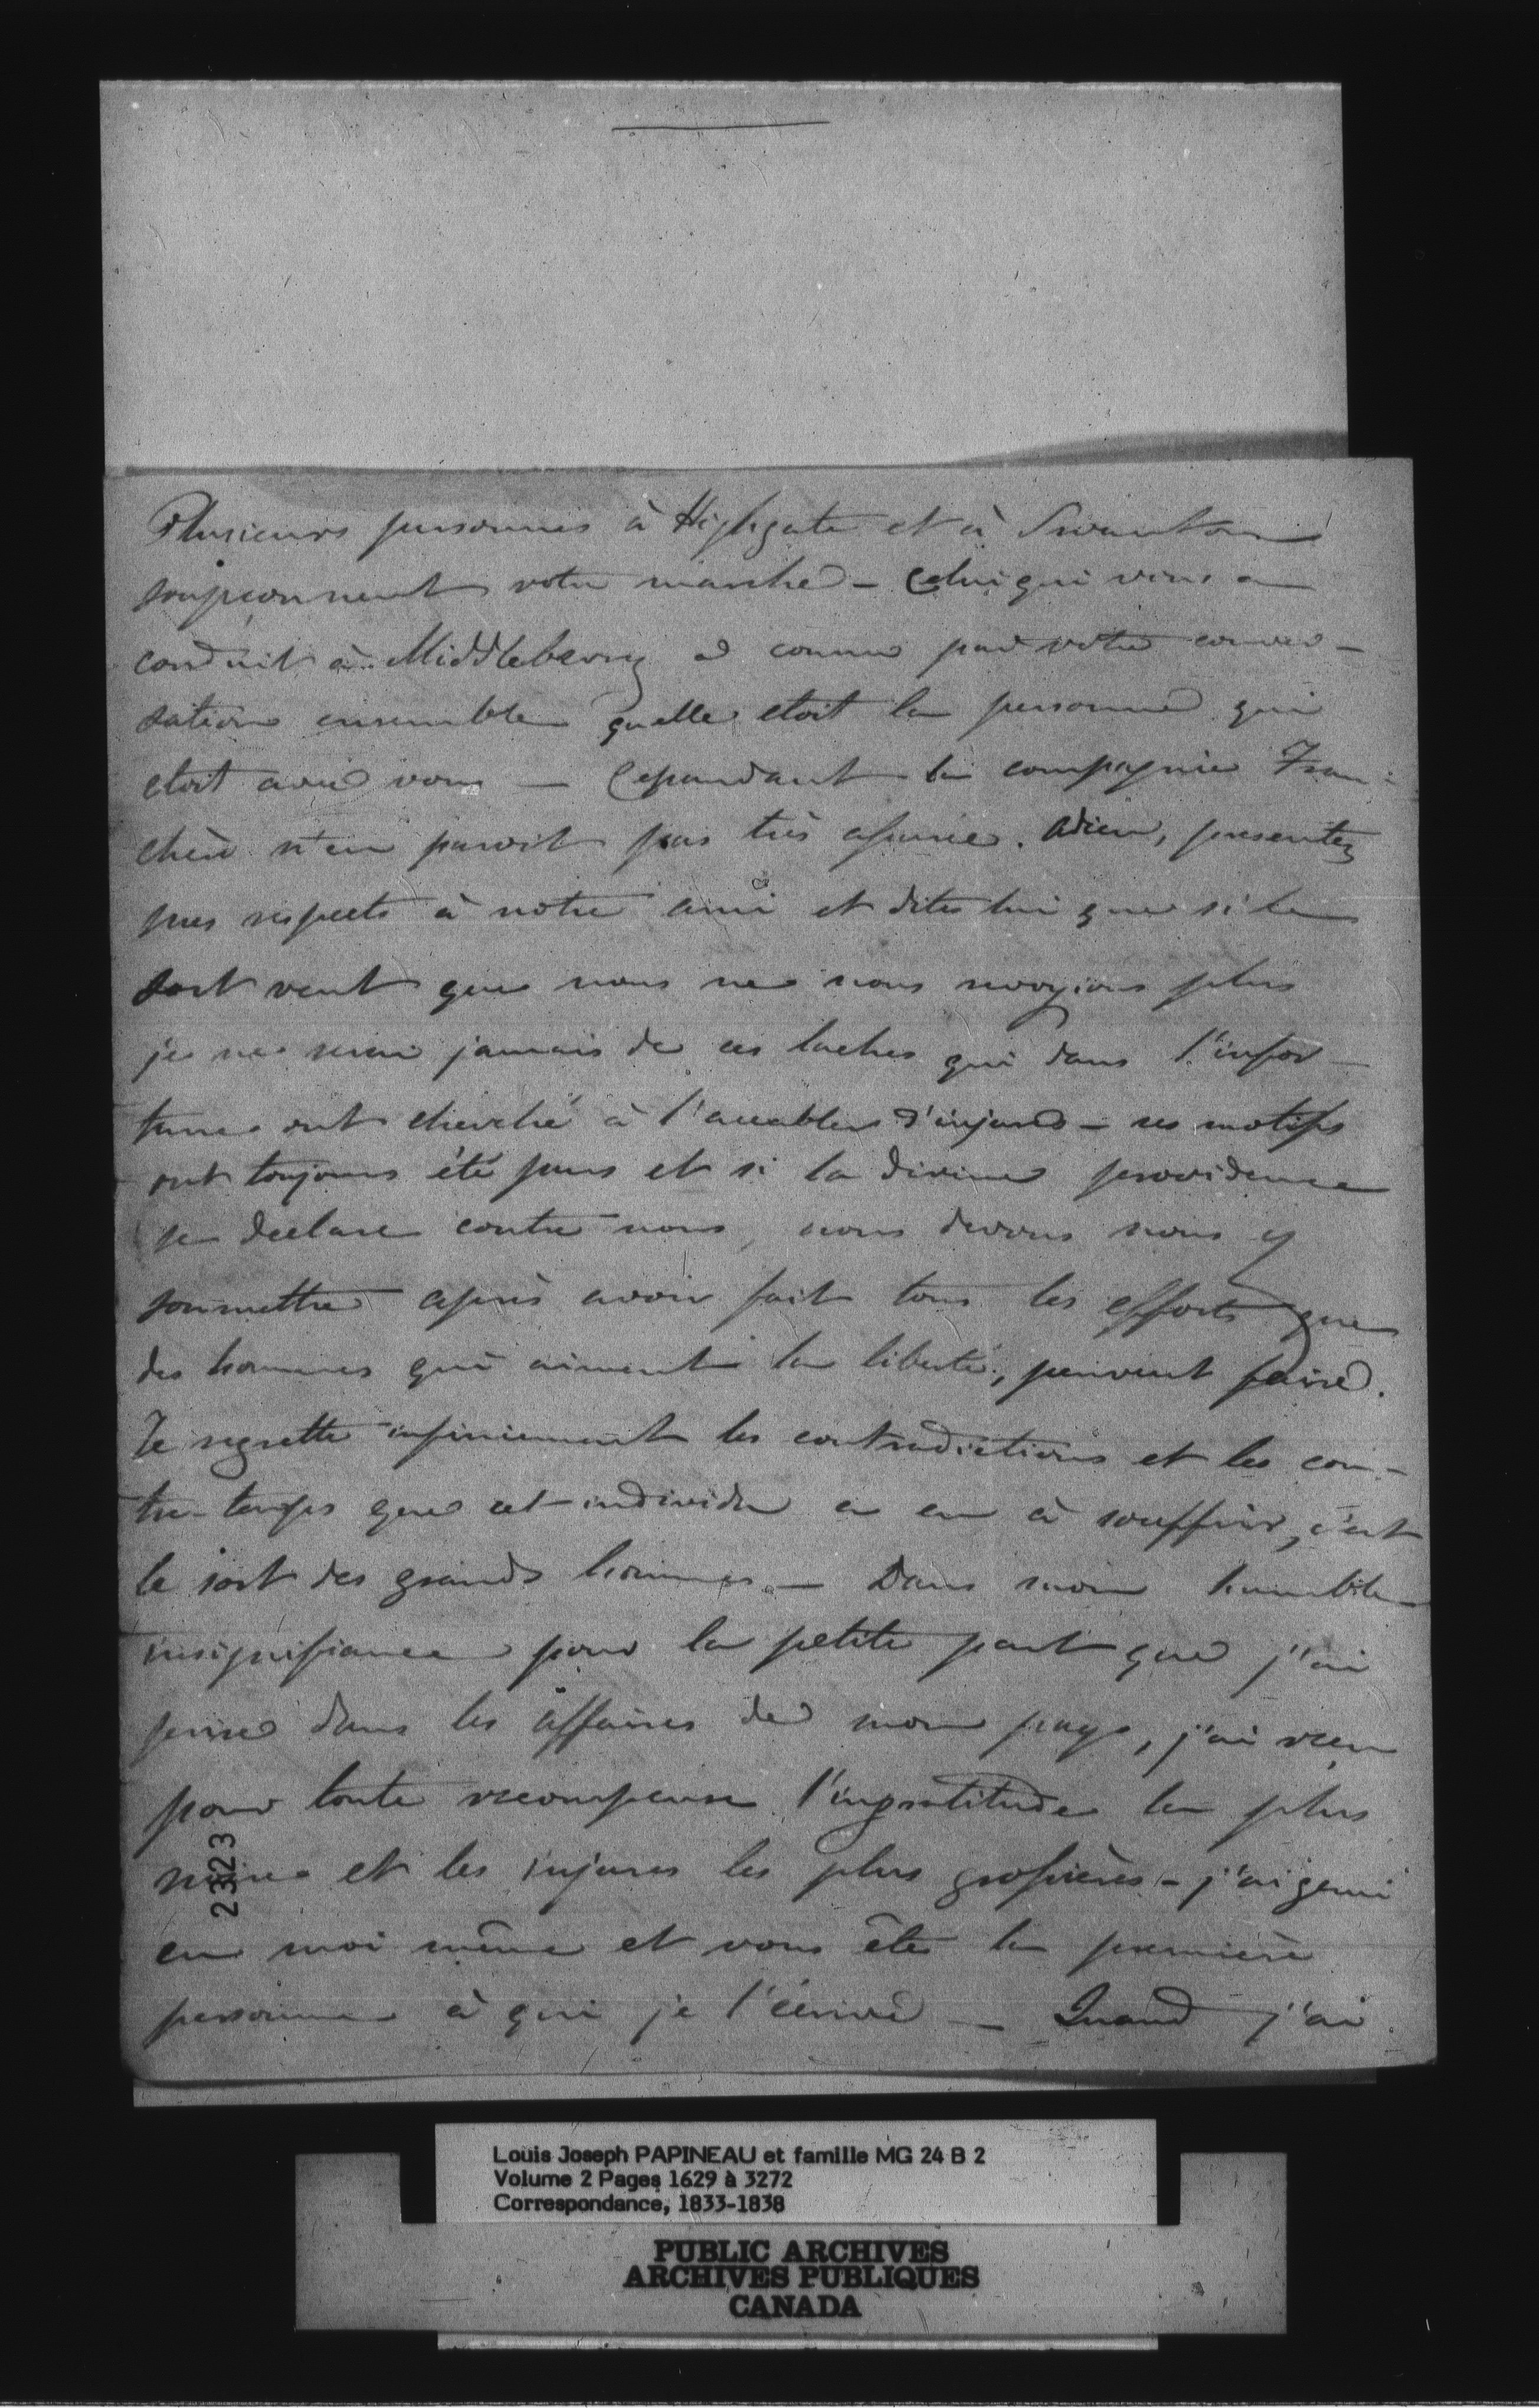 Plusieurs personnes à Highgate et à Swanton
soupçonnent votre marche — Celui qui vous a
conduit à Middlebury a connu par votre conver-
sation ensemble quelle etoit la personne qui
etoit avec vous — Cependant la compagnie Fran-
chère n'en paroit pas très assurée. Adieu, presentez
mes respects à notre ami et dites lui que si le
sort veut que nous ne nous revoyions plus
je ne serai jamais de ces laches qui dans l'infor-
tune ont cherché à l'accabler d'injures — ses motifs
ont toujours été purs et si la divine providence
se declare contre nous, nous devons nous y
soumettre après avoir fait tous les efforts que
des hommes qui aiment la liberté, peuvent faire.
Je regrette infiniement les contradictions et les con-
tre-temps que cet individu a eu à souffrir, c'est
le sort des grands hommes — Dans mon humble
insignifiance pour la petite part que j'ai
prise dans les affaires de mon pays, j'ai reçu
pour toute recompense l'ingratitude la plus
noire et les injures les plus grossières — j'ai gemi
en moi même et vous êtes la première
personne à qui je l'écrive — Quand j'ai
2323
Louis Joseph PAPINEAU et famille MG 24 B 2
Volume 2 Pages 1629 à 3272
Correspondance, 1833-1838
PUBLIC ARCHIVES
ARCHIVES PUBLIQUES
CANADA